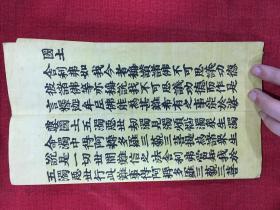 國土
舍利弗如我今者稱讚諸佛不可思議功德
彼諸佛等亦稱說我不可思議功德而作是
言釋迦牟尼佛能為甚難希有之事能於娑
婆國土五濁惡世劫濁見濁煩惱濁眾生濁
命濁中得阿耨多羅三藐三菩提為諸眾生
說是一切世間難信之法舍利弗當知我於
五濁惡世行此難事得阿耨多羅三藐三菩